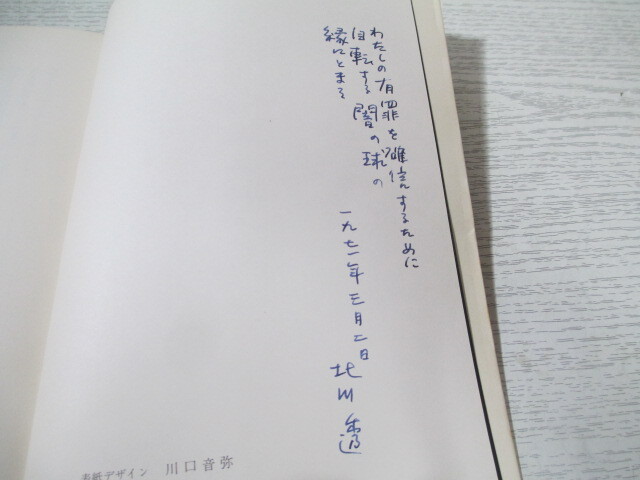 わたしの有罪を確信するために
自転する闇の球の
縁にとまる
一九七一年三月二日
北川透
表紙デザイン 川口音弥